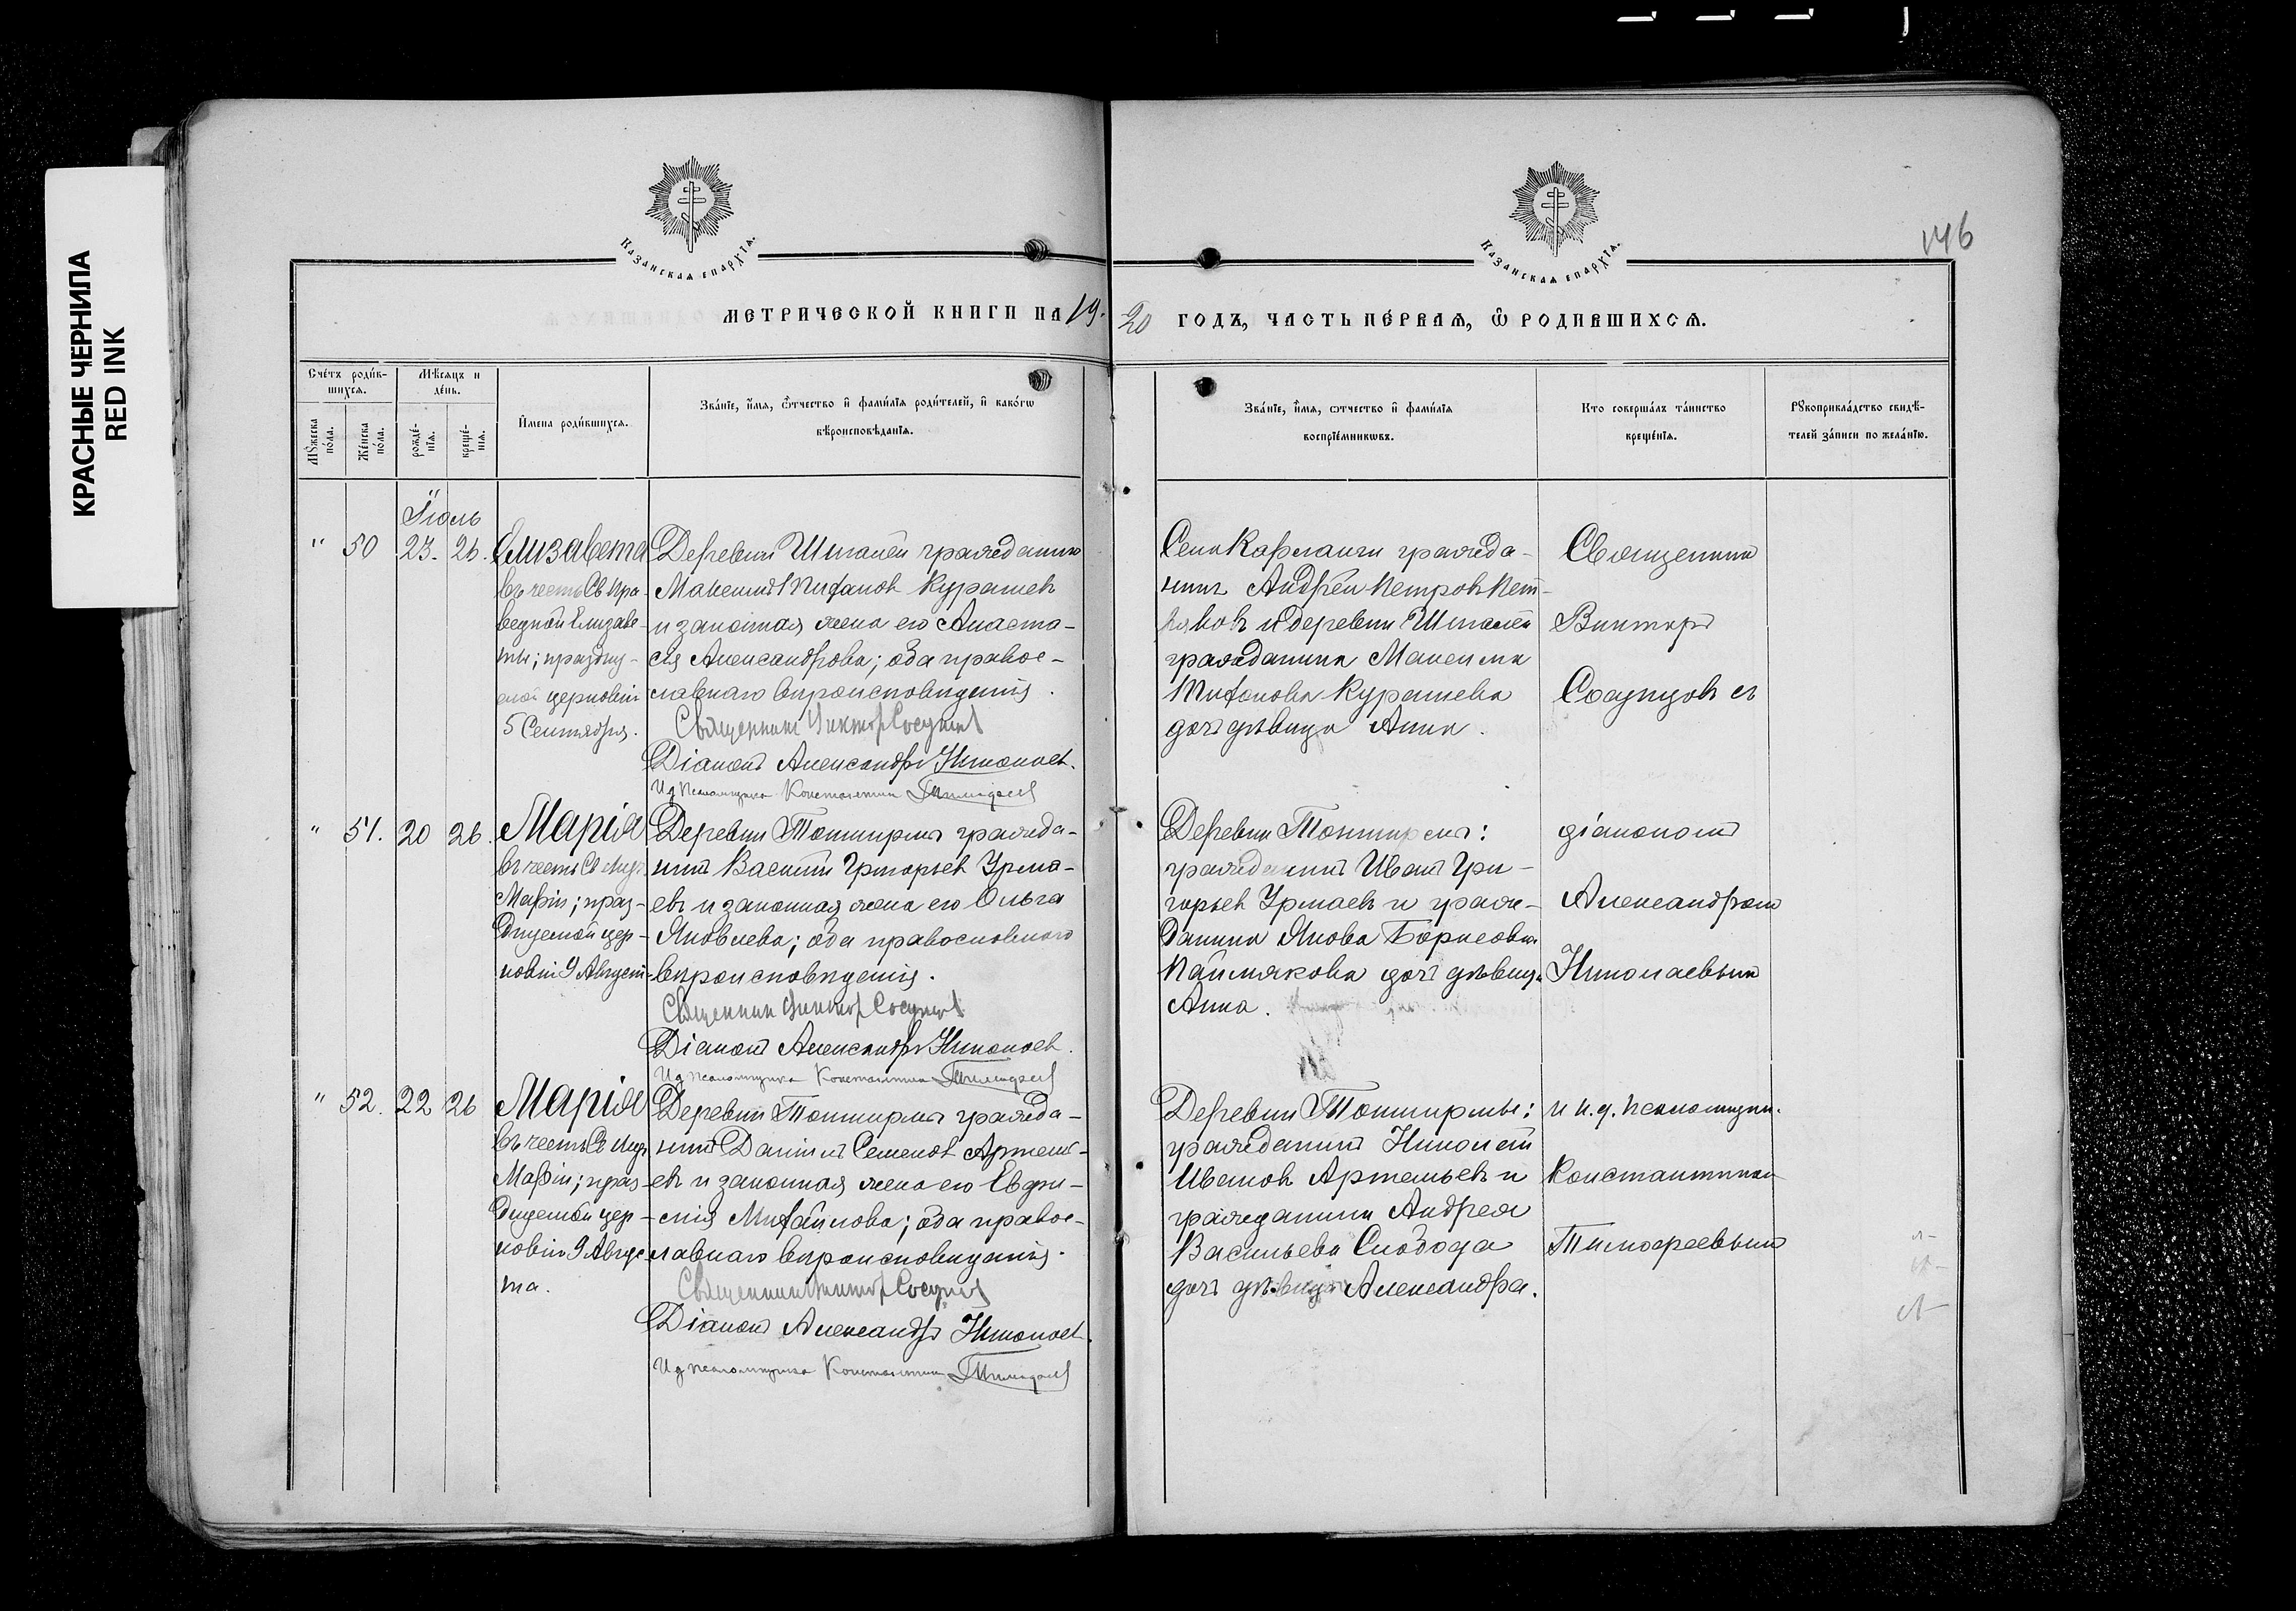 КРАСНЫЕ ЧЕРНИЛА
RED INK
146
Казанская епархїѧ.
Казанская епархїѧ.
МЕТРИЧЕСКОЙ КНИГИ НА 19
20 ГОДЪ, ЧАСТЬ ПЕ́РВАѦ, Ѽ РОДИВШИХСѦ.
Сче́тъ роди́в-
шихсѧ.
Мѣ́сѧцъ и
де́нь.
Мꙋ́жеска
по́ла.
Же́нска
по́ла.
рожде́-
нїѧ.
креще́-
нїѧ.
И҆мена роди́вшихсѧ.
Зва́нїе, и҆́мѧ, ѻ҆́тчество и҆ фами́лїѧ роди́телей, и҆ како́гѡ
вѣроисповѣ́данїѧ.
Зва́нїе, и҆́мѧ, ѻ҆́тчество и҆ фами́лїѧ
воспрїе́мникѡвъ.
Кто соверша́лъ та́инство
креще́нїѧ.
Рꙋкоприкла́дство свидѣ́-
телей за́писи по жела́нїю.
Іюль
" 50 23. 26. Елизавета
въ честь Св Пра-
ведной Елизаве-
ты; праздну-
емой церковію
5 Сентября.
Деревни Шигалей гражданинъ
Максимъ Курашев
и законная жена его Анаста-
сія Александрова; оба правос-
лавнаго вѣроисповѣданія.
Священникъ Викторъ
Діаконъ Александръ Николаев.
И д псаломщика Константин Тимофеев
Села граждa-
нинъ Андрей Петровъ
и деревни Шигалей
гражданина Максима
Курашева
дочь дѣвица Анна.
Священникъ
Викторъ
съ
" 51. 20 26. Марія
въ честь Св Муч
Маріи; праз-
днуемой цер-
ковію 9 Август
Деревни Тоншермъ гражда-
нинъ Василій Григорьев Урма-
евъ и законная жена его Ольга
Яковлева; оба православнаго
вѣроисповѣданія.
Священник Виктор
Діаконъ Александръ Николаев.
И д псаломщика Константин Тимофеев
гражданинъ Иванъ Гри-
горьев Урмаевъ и граж-
данина Якова Борисова
дочь дѣвица
Анна.
діакономъ
Александромъ
Николаевымъ
" 52. 22 26 Марія
въ честь Св Муч
Маріи; праз-
днуемой цер-
ковію 9 Авгус
та.
гражда-
нинъ Даніилъ Семенов Артемь-
евъ и законная жена его Евдо-
кія Михайлова; оба правос-
лавнаго вѣроисповѣданія.
Священникъ Виктор
Діаконъ Александръ Николаев.
И д псаломщика Константин Тимофеев
гражданинъ Николай
Иванов Артемьевъ и
гражданина Андрея
Васильева
дочь дѣвица Александра.
и и.д. псаломщик.
Константином
Тимофеевымъ